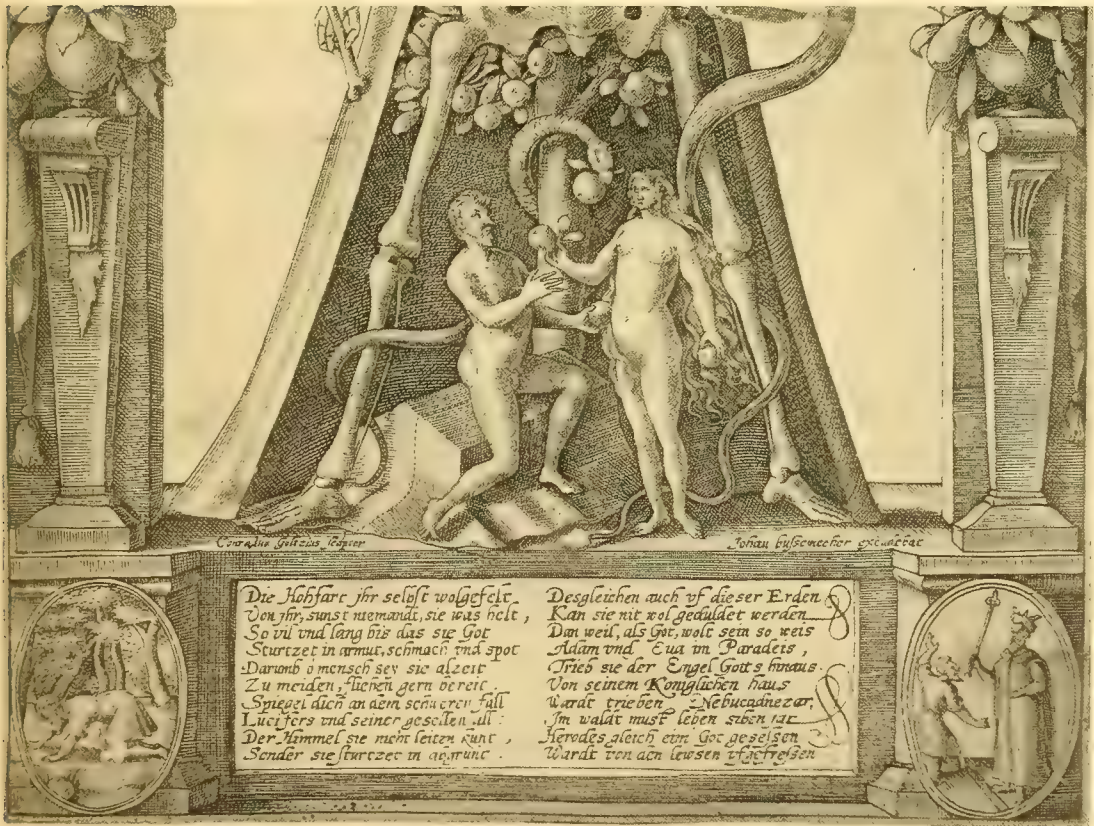 Conradus Goltzius sculpter
Johan bußemecher excudebat
Die Hohfart jhr selbst wolgefelt,
Von jhr, sunst niemandt, sie was helt,
So vil vnd lang bis das sie Got
Sturtzet in armut, schmach vnd spot
Darumb o mensch sey sie alzeit
Zu meiden, fliehen gern bereit,
Spiegel dich an dem schweren fall
Lucifers vnd seiner gesellen all:
Der Himmel sie nicht leiten kunt,
Sonder sie sturtzet in abgrunt.
Desgleichen auch vf dieser Erden
Kan sie nit wol geduldet werden
Dan weil, als Got, wolt sein so weis
Adam vnd Eua im Paradeis,
Trieb sie der Engel Gotts hinaus
Von seinem Koniglichen haus
Wardt trieben Nebucadnezar,
Im waldt must leben siben iar
Herodes gleich eim Got gesessen
Wardt von den lewsen vfgefressen